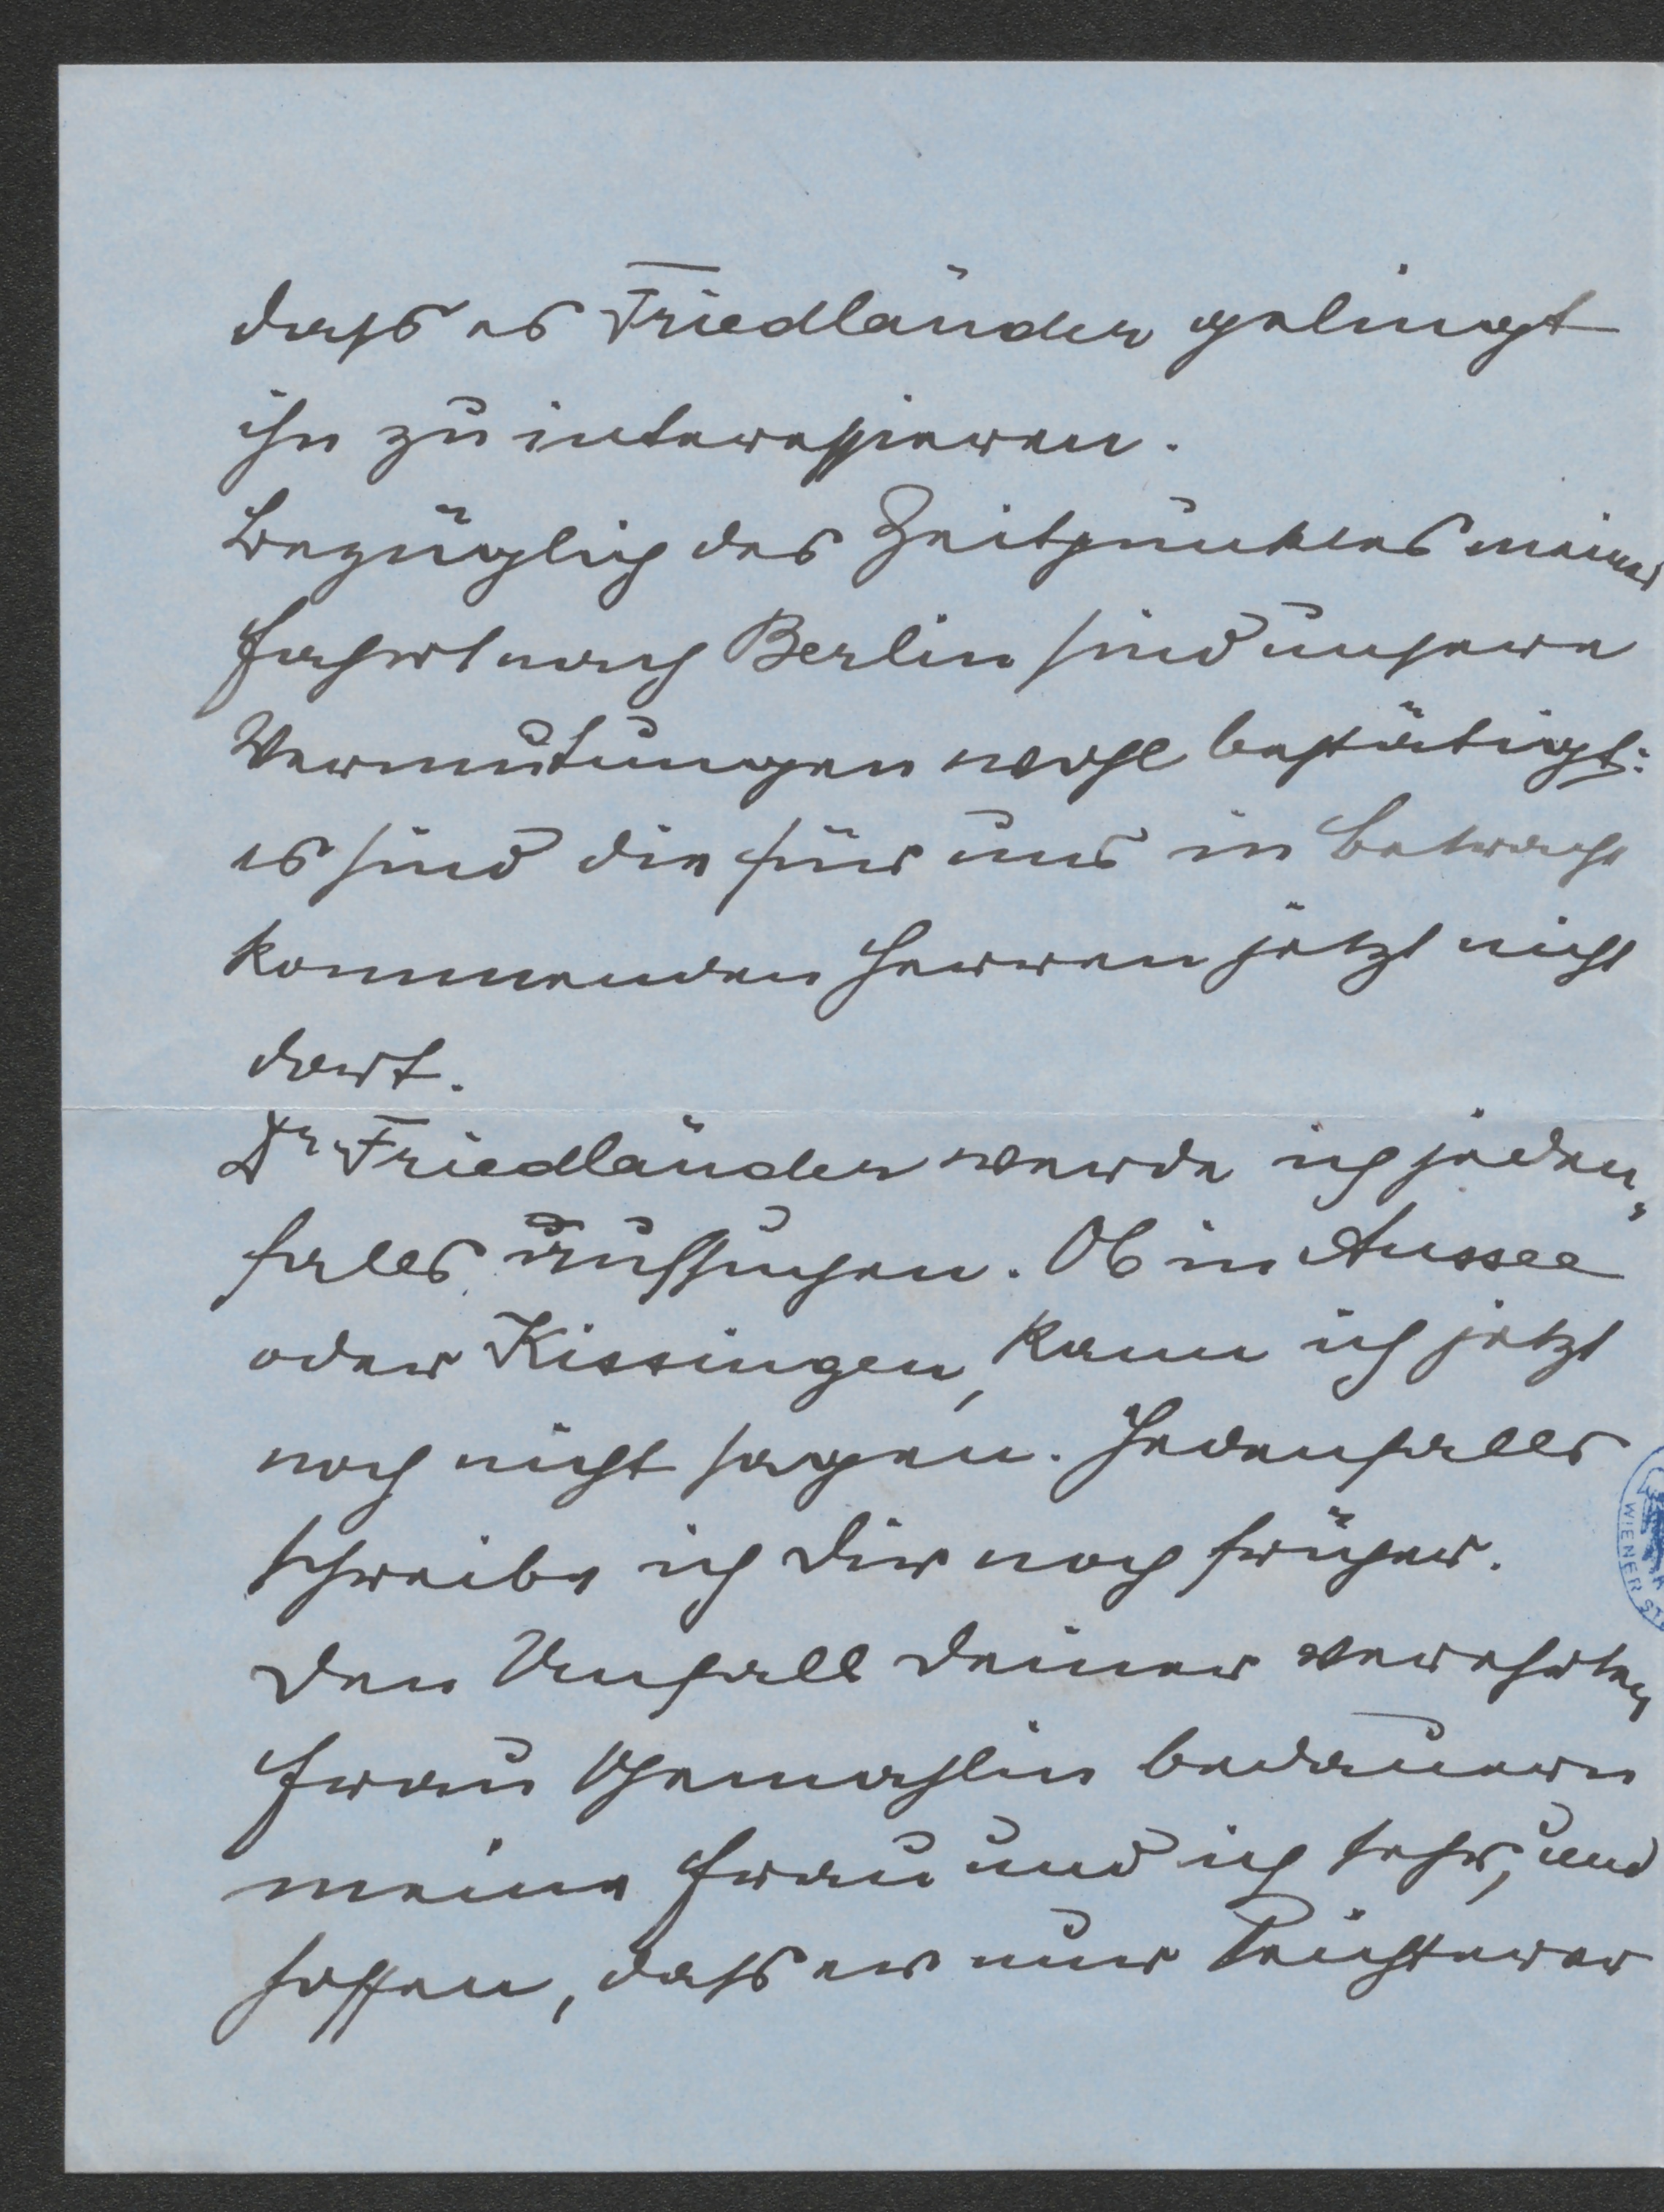 dass es Friedländer gelingt
ihn zu interessieren.
Bezüglich des Zeitpunktes meiner
Fahrt nach Berlin sind unsere
Vermutungen wohl bestätigt:
es sind die für uns in Betracht
kommenden Herren jetzt nicht
dort.
Dr Friedländer werde ich jeden-
falls aufsuchen. Ob in Aussee
oder Kissingen, kann ich jetzt
noch nicht sagen. Jedenfalls
schreibe ich Dir noch früher.
Den Unfall Deiner verehrten
Frau Gemahlin bedauern
meine Frau und ich sehr, und
hoffen, dass er nur leichterer
WIENER ST